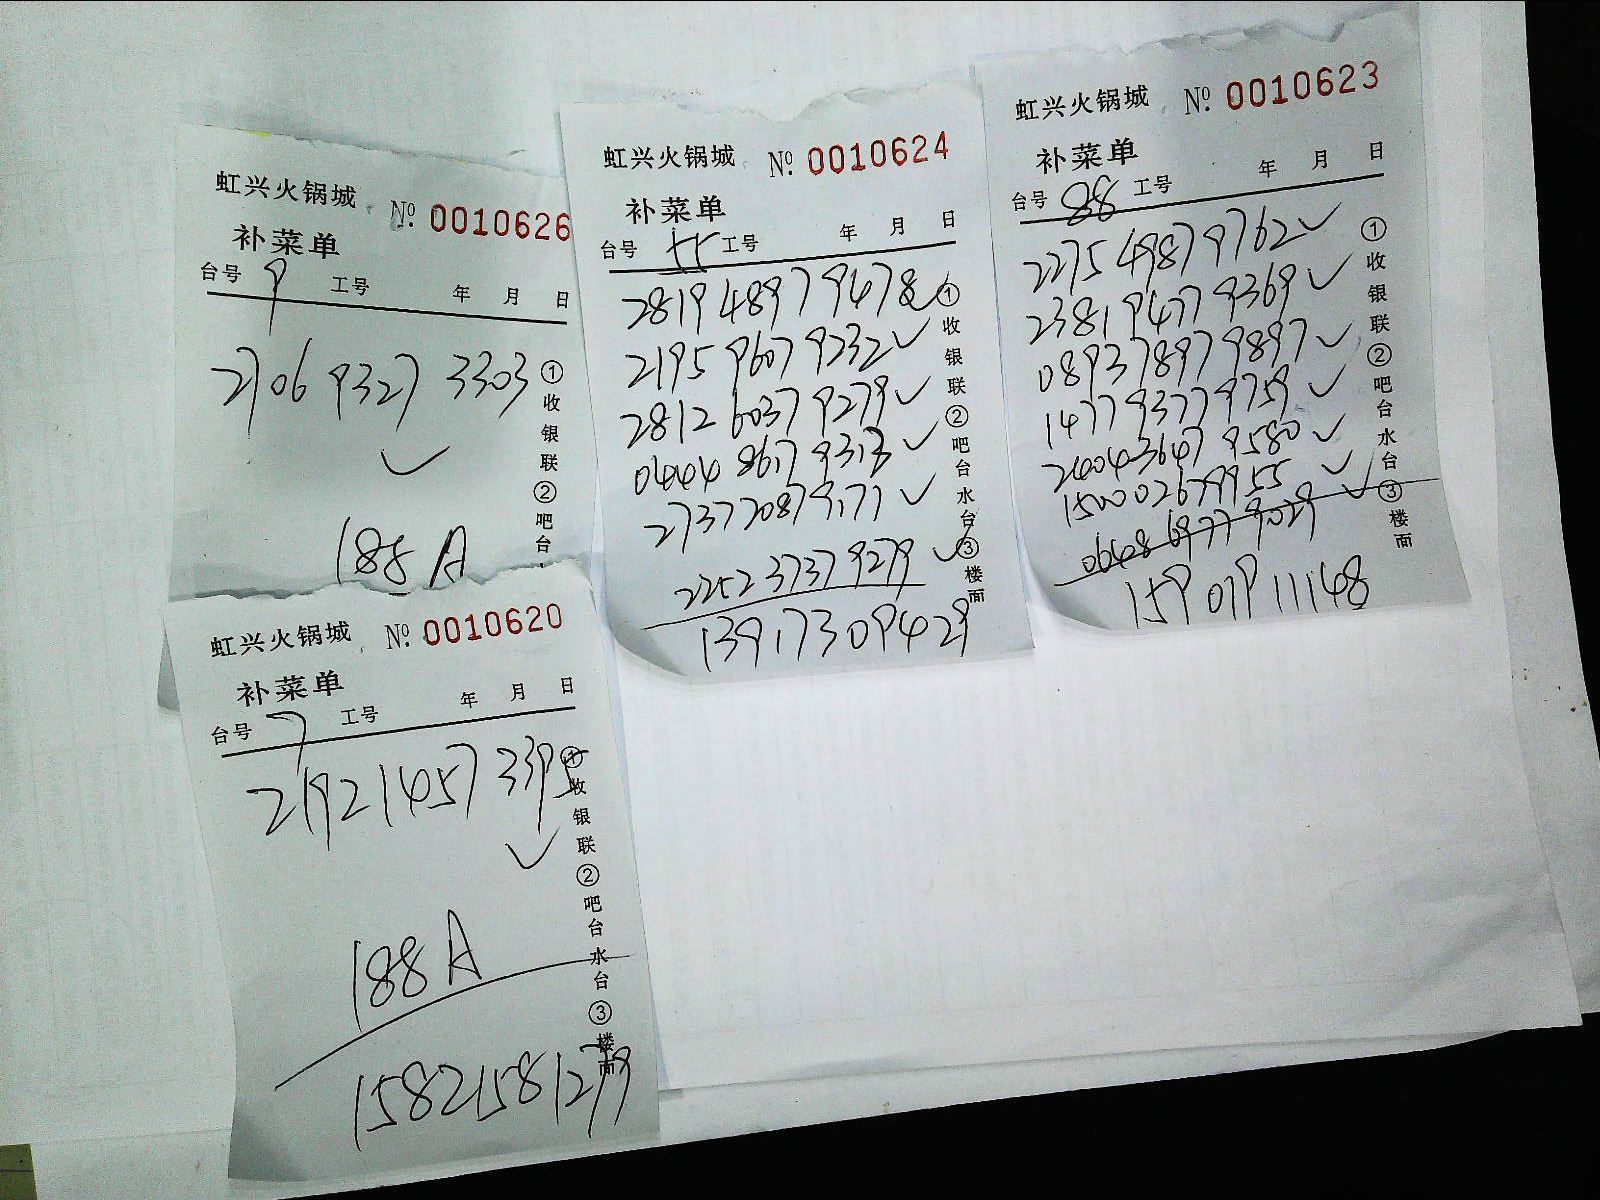 虹兴火锅城 No. 0010626
补菜单
台号 9 工号 年 月 日
2706 9327 3303
188A
①收银联②吧台
虹兴火锅城 No. 0010624
补菜单
台号 55 工号 年 月 日
2819 4897 9478
2195 9607 9232
2812 6037 9279
04444 8617 9313
2737 2087 9171
2252 3737 9279
13917309429
①收银联②吧台水台③楼面
虹兴火锅城 No. 0010623
补菜单
台号 88 工号 年 月 日
2275 4987 9762
23819477 9369
089378979897
1477 9377 9759
240403647 9580
150002679955
06408 6977 9029
159 079 11148
①收银联②吧台水台③楼面
虹兴火锅城 No. 0010620
补菜单
台号 7 工号 年 月 日
21921457 3395
188A
15821581279
①收银联②吧台水台③楼面